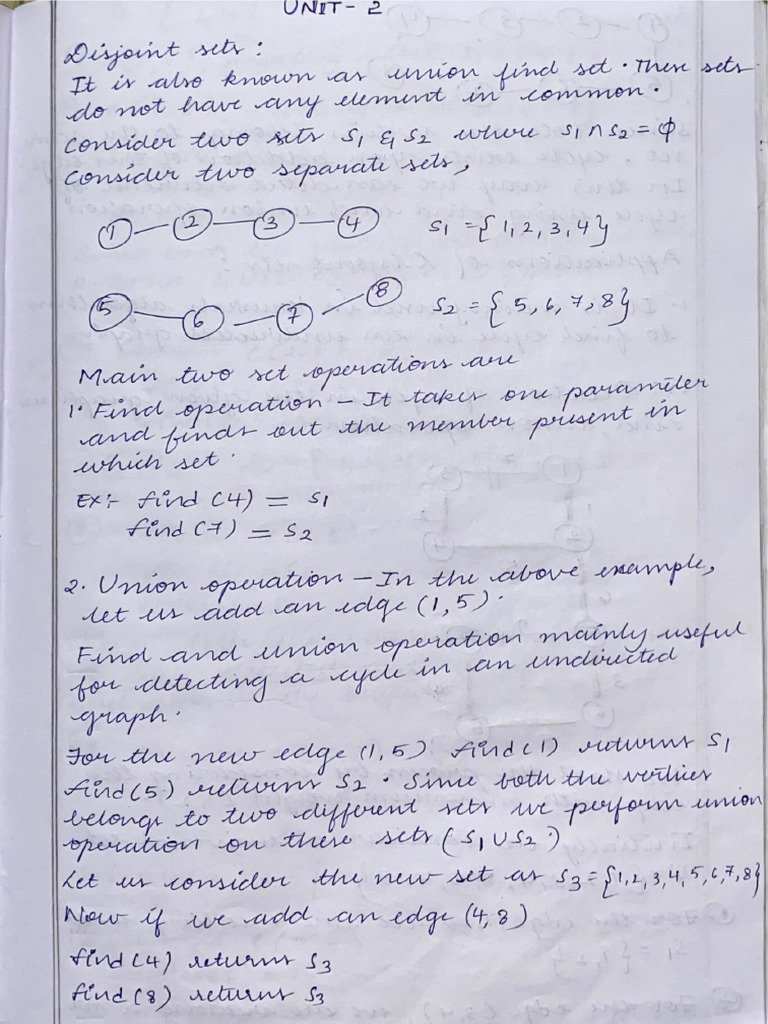 UNIT - 2
Disjoint sets :
It is also known as union find set. These sets
do not have any element in common.
Consider two sets S1 & S2 where S1 ∩ S2 = ϕ
Consider two separate sets,
1 2 3 4 S1 = { 1, 2, 3, 4 }
5 6 7 8 S2 = { 5, 6, 7, 8 }
Main two set operations are
1. Find operation - It takes one parameter
and finds out the member present in
which set.
Ex:- find (4) = S1
find (7) = S2
2. Union operation - In the above example,
let us add an edge (1, 5).
Find and union operation mainly useful
for detecting a cycle in an undirected
graph.
For the new edge (1, 5) find (1) returns S1
find (5) returns S2. Since both the vertices
belongs to two different sets we perform union
operation on these sets (S1 ∪ S2)
Let us consider the new set as S3 = {1, 2, 3, 4, 5, 6, 7, 8}
Now if we add an edge (4, 8)
find (4) returns S3
find (8) returns S3